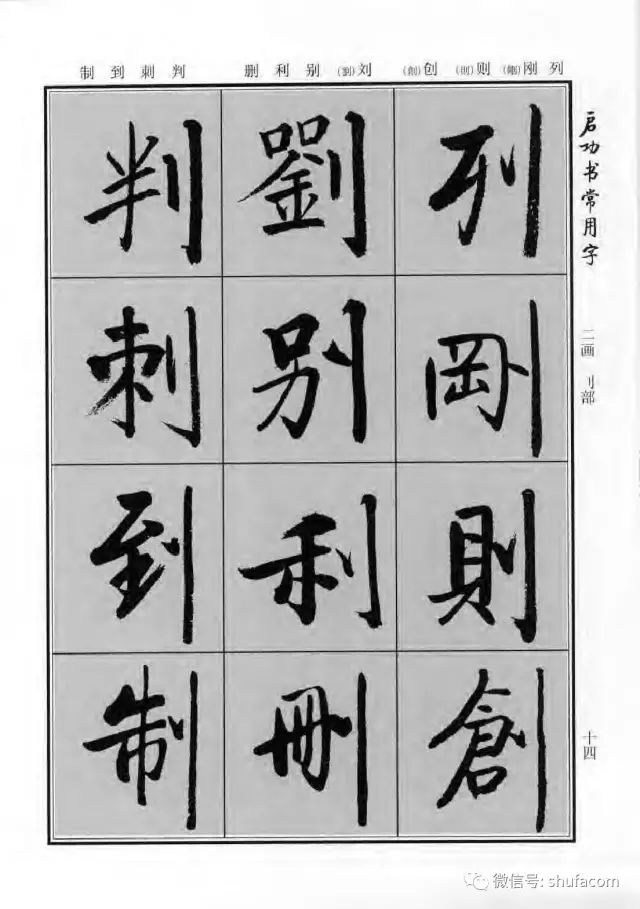 列刚(剛)则(則)创(創) 刘(劉)别利删 判刺到制
启功书常用字
二画 刂部
十四
列剛則創
劉别利刪
判刺到制
微信号: shufacom